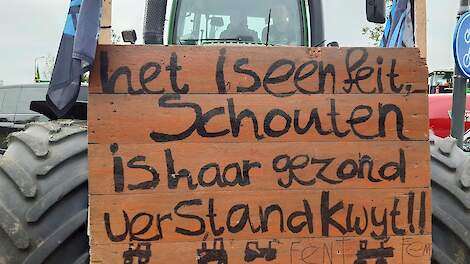 het Is een feit,
Schouten
is haar gezond
verstand kwyt!!
FENT FENT